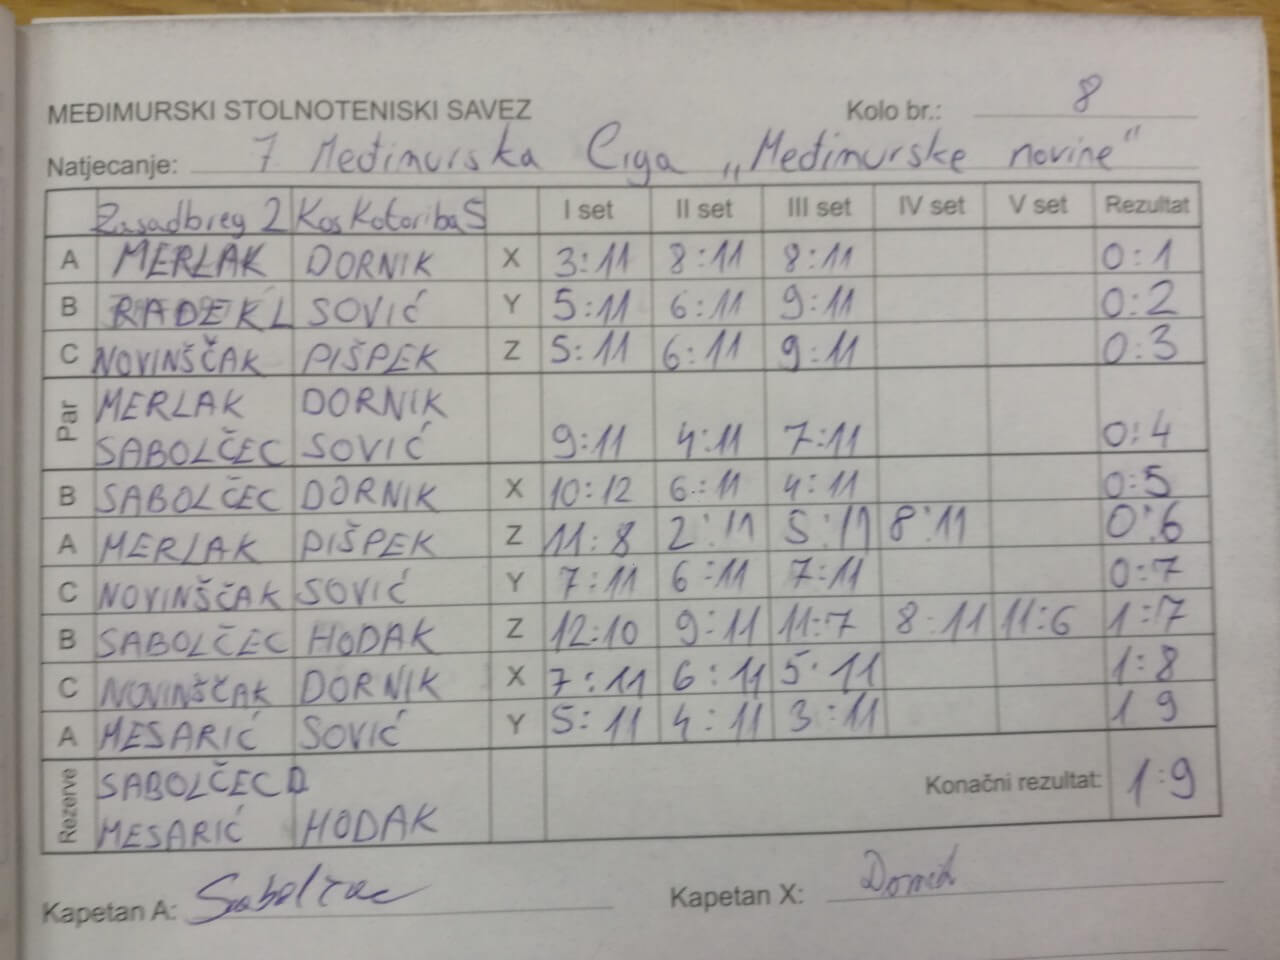 MEĐIMURSKI STOLNOTENISKI SAVEZ Kolo br.: 8
Natjecanje: 7 Međimurska Liga „Međimurske novine"
Zasadbreg 2 Kos Kotoriba 5 I set II set III set IV set V set Rezultat
A MERLAK DORNIK X 3:11 8:11 8:11 0:1
B RADEK L SOVIĆ Y 5:11 6:11 9:11 0:2
C NOVINŠČAK PIŠPEK Z 5:11 6:11 9:11 0:3
Par MERLAK DORNIK
SABOLČEC SOVIĆ 9:11 4:11 7:11 0:4
B SABOLČEC DORNIK X 10:12 6:11 4:11 0:5
A MERLAK PIŠPEK Z 11:8 2:11 5:11 8:11 0:6
C NOVINŠČAK SOVIĆ Y 7:11 6:11 7:11 0:7
B SABOLČEC HODAK Z 12:10 9:11 11:7 8:11 11:6 1:7
C NOVINŠČAK DORNIK X 7:11 6:11 5:11 1:8
A MESARIĆ SOVIĆ Y 5:11 4:11 3:11 1 9
Rezerve SABOLČEC D
MESARIĆ HODAK Konačni rezultat: 1:9
Kapetan A: Kapetan X: